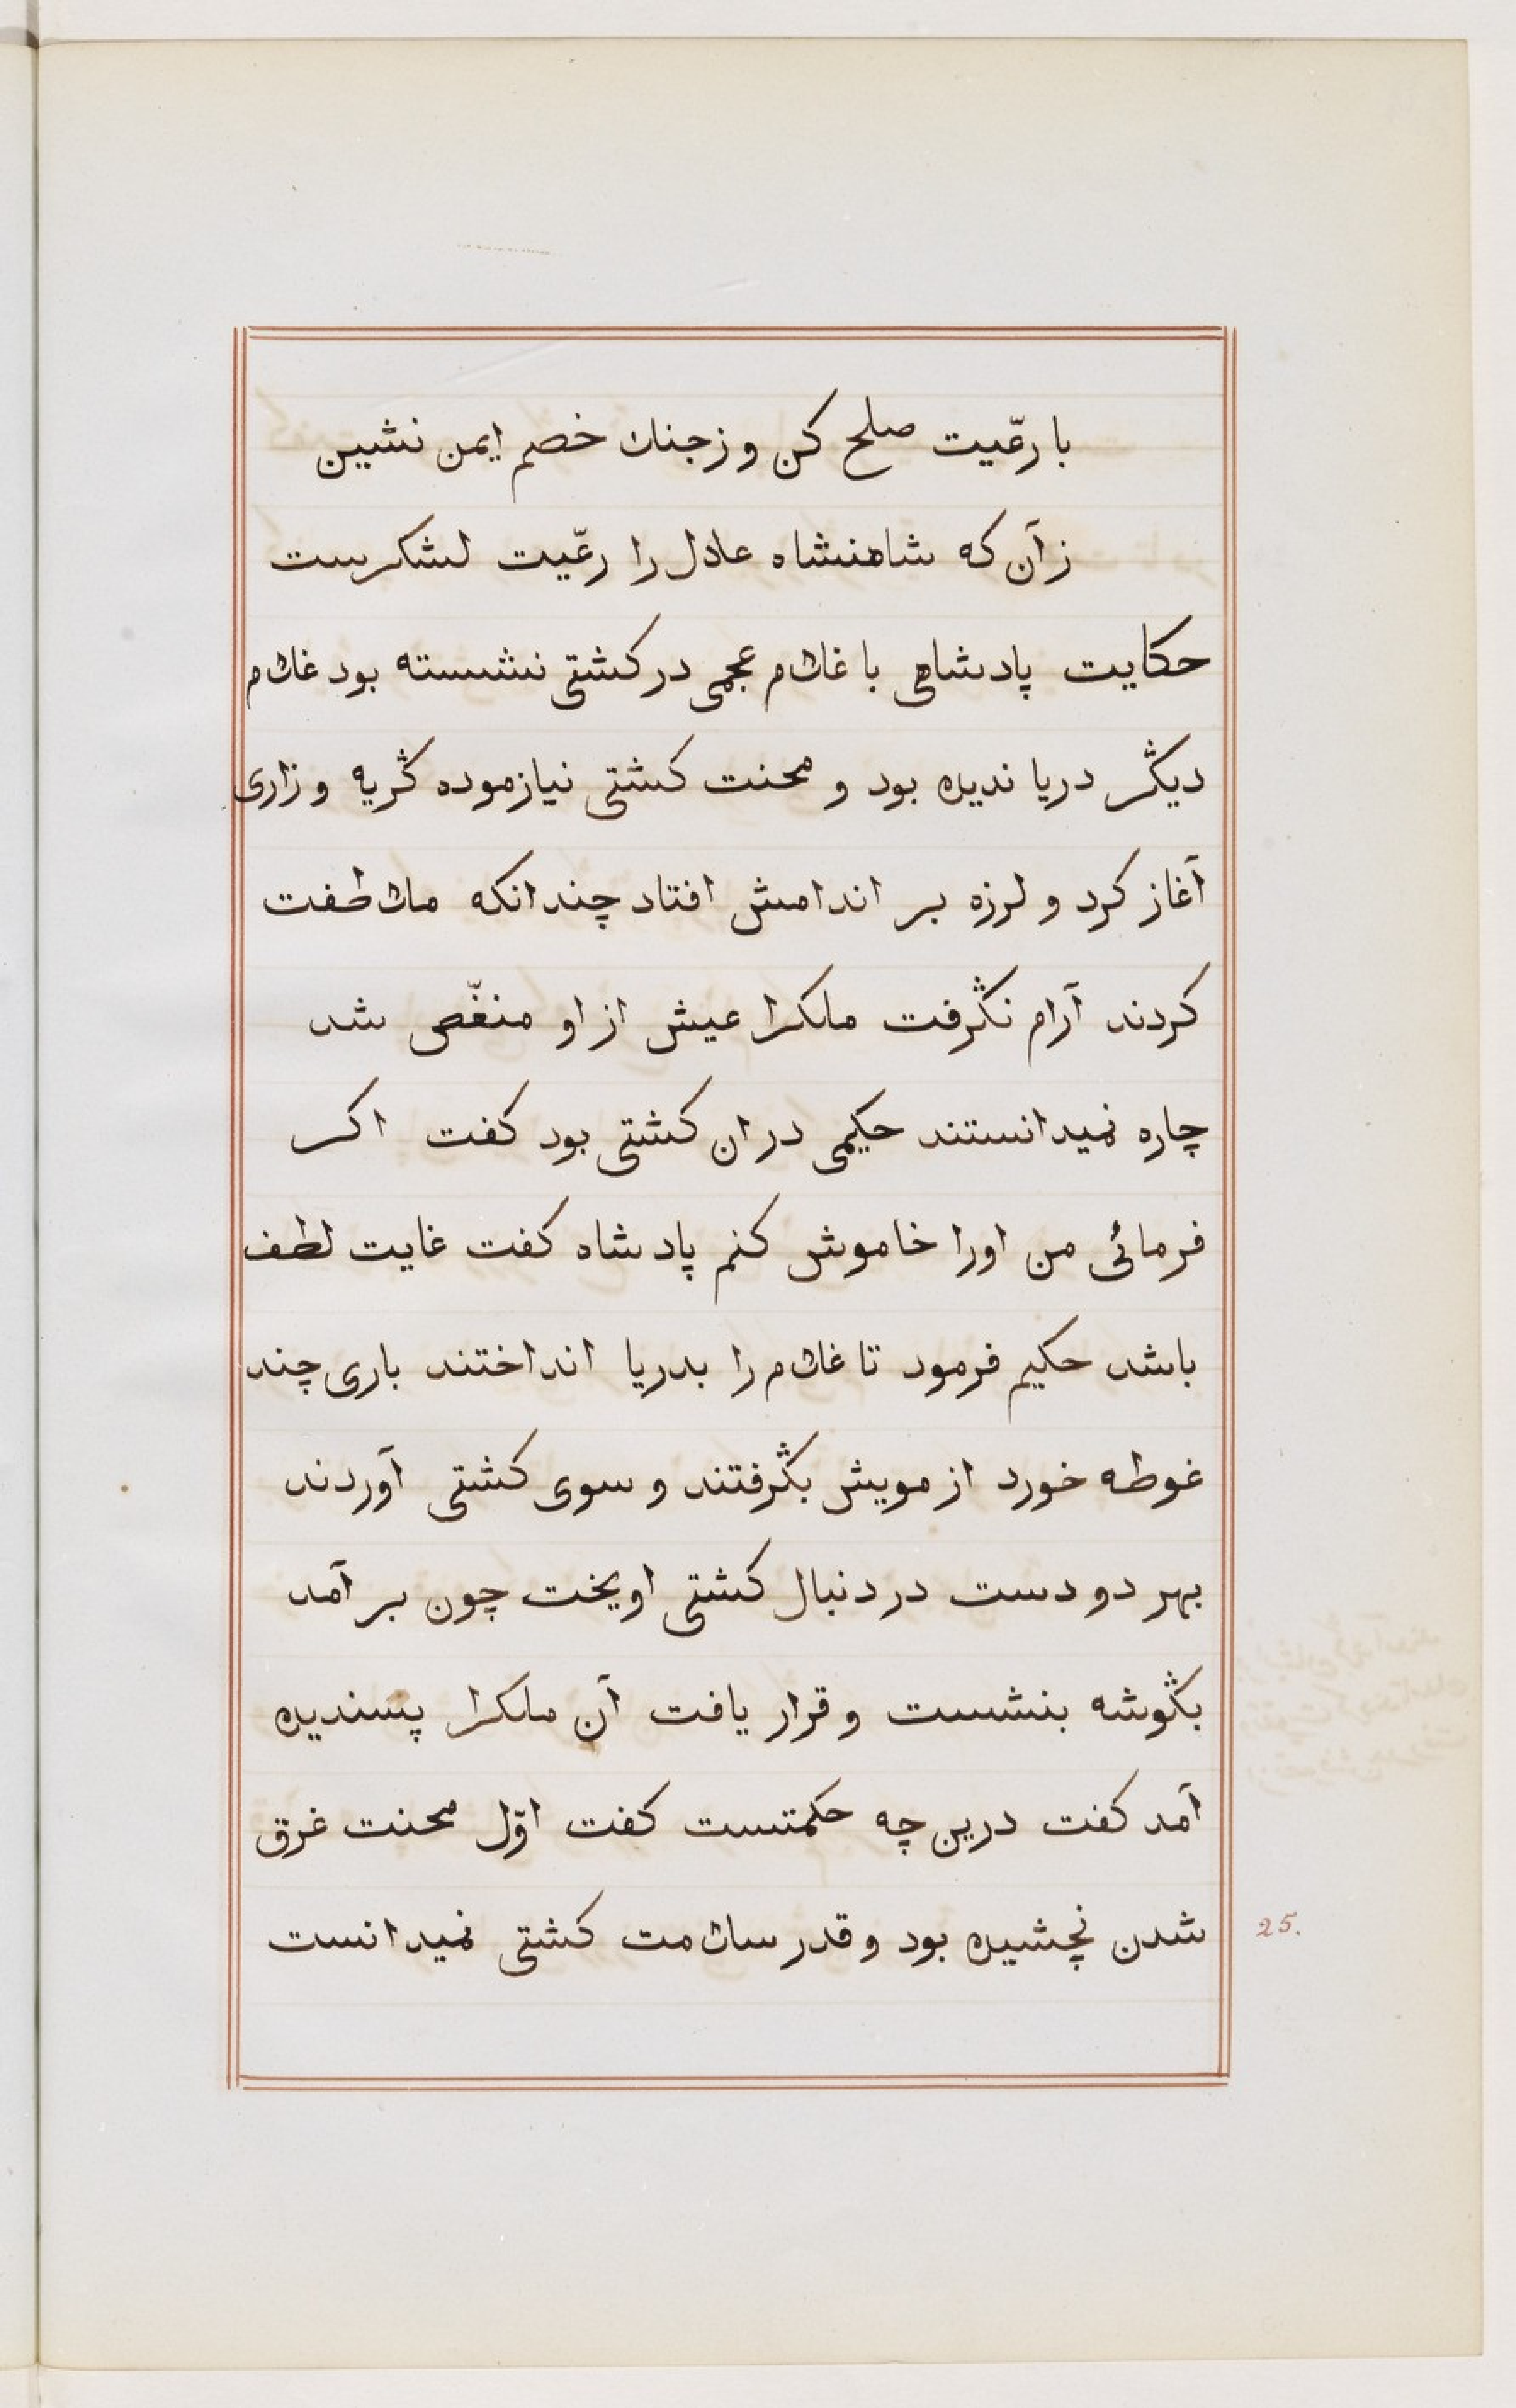 با رعّیت صلح کن و ز جنك خصم ایمن نشین
زآن که شاهنشاه عادل را رعّیت لشکرست
حکایت پادشاهی با غلام عجمی در کشتی نشسته بود غلام
دیگر دریا ندیده بود و محنت کشتی نیازموده گریه و زاری
آغاز کرد و لرزه بر اندامش افتاد چندانکه ملاطفت
کردند آرام نگرفت ملکرا عیش از او منغّص شد
چاره نمیدانستند حکیمی در ان کشتی بود کفت اکر
فرمائی من اورا خاموش کنم پادشاه کفت غایت لطف
باشد حکیم فرمود تا غلام را بدریا انداختند باری چند
غوطه خورد از مویش بگرفتند و سوی کشتی آوردند
بهر دو دست در دنبال کشتی اویخت چون بر آمد
بگوشه بنشست و قرار یافت آن ملکرا پسندیده
آمد کفت درین چه حکمتست کفت اوّل محنت غرق
شدن نچشیده بود و قدر سلامت کشتی نمیدانست
25.